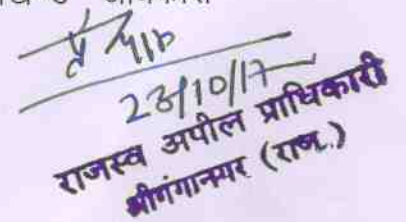 23/10/17
राजस्व अपील प्राधिकारी
श्रीगंगानगर (राज.)